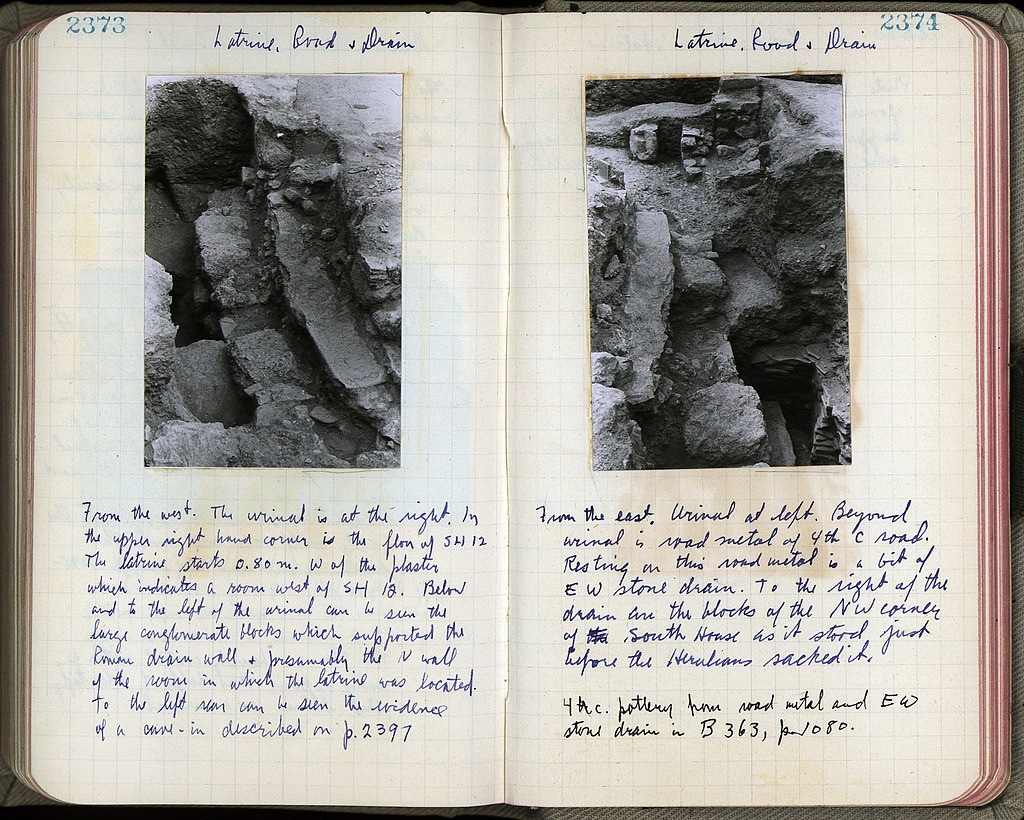 2373
Latrine, Road & Drain
From the west. The urinal is at the right. In
the upper right hand corner is the floor of SH 12
The latrine starts 0.80 m. W of the plaster
which indicates a room west of SH 12. Below
and to the left of the urinal can be seen the
large conglomerate blocks which supported the
Roman drain wall & presumably the N wall
of the room in which the latrine was located.
To the left rear can be seen the evidence
of a cave-in described on p. 2397
2374
Latrine, Road & Drain
From the east. Urinal at left. Beyond
urinal is road metal of 4th c road.
Resting on this road metal is a bit of
E W stone drain. To the right of the
drain are the blocks of the NW corner
of South House as it stood just
before the Herulians sacked it.
4th c. pottery from road metal and E W
stone drain in B 363, p. 1080.